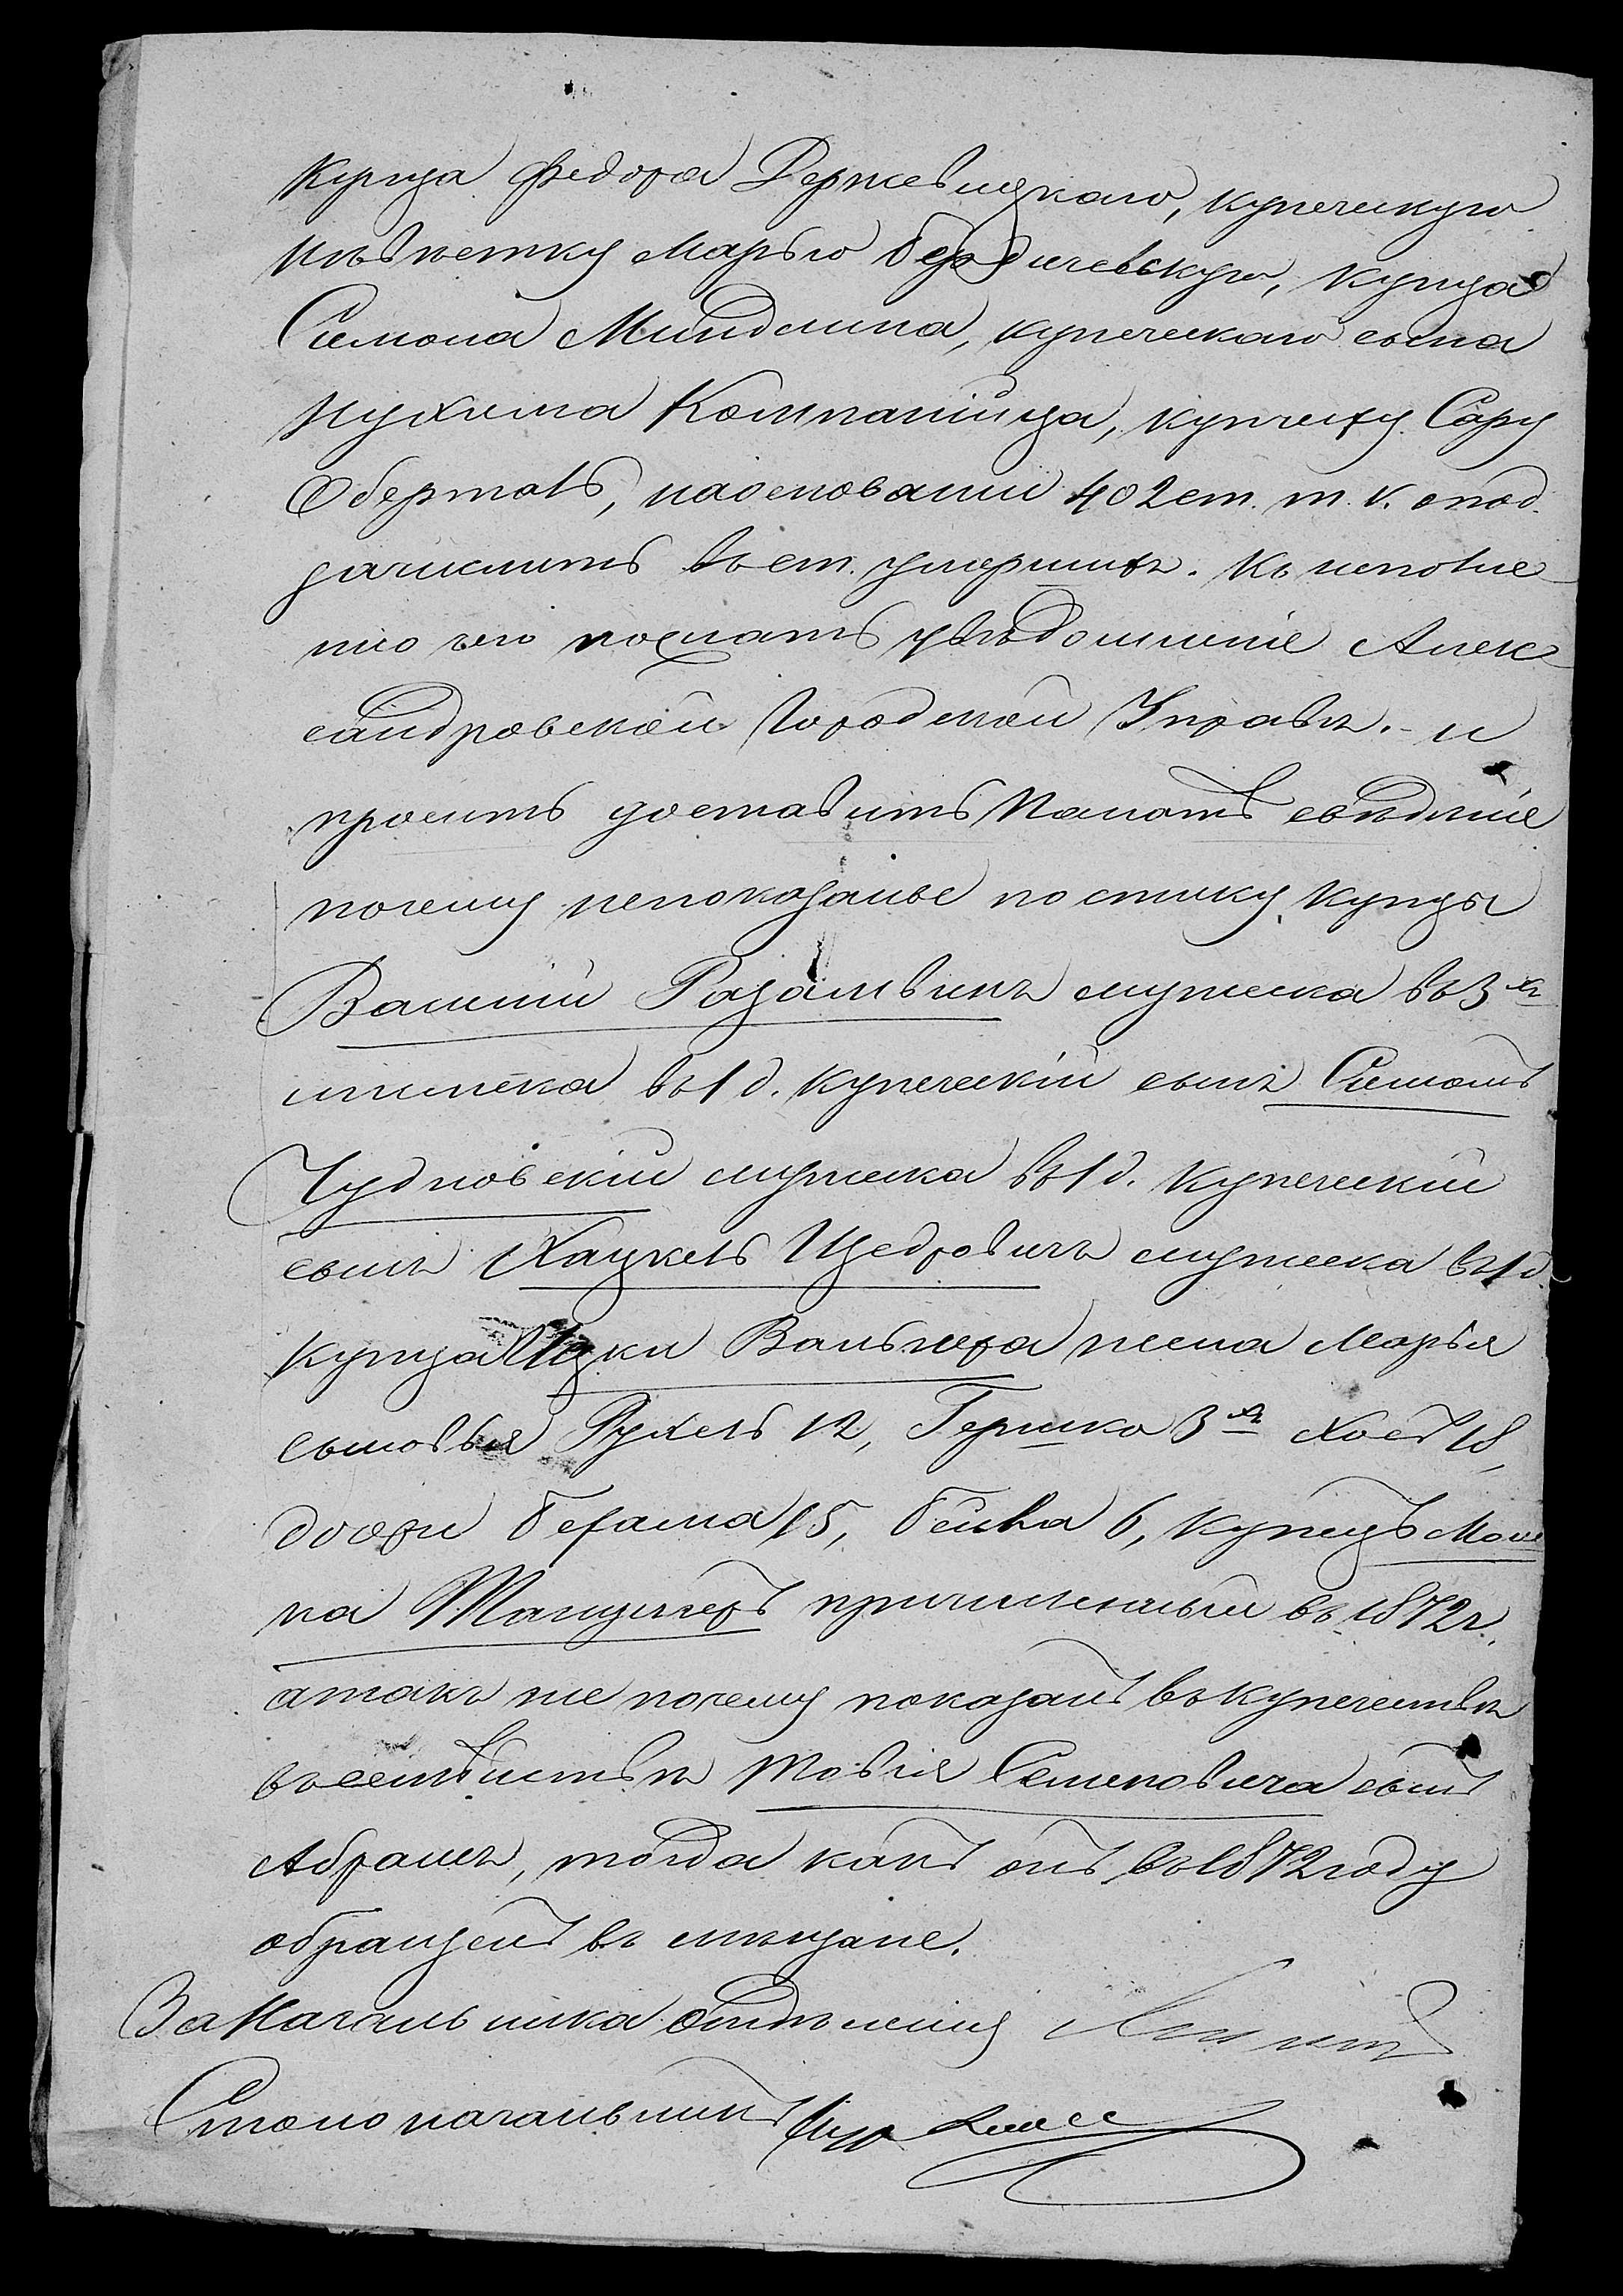 купца Федора Держевицкаго, купеческую
племянетку Марью Бердичевскую, купца
Симона Миндлина, купеческаго сына
Нухима Компанійца, купчиху Сару
Оберталь, на основаніи 402 ст. т. V. о под.
зачислить въ ст. умершихъ. Къ исполне-
нію чего послать увѣдомленіе Алек-
сандровской Городской Управѣ. - и
просить доставить Палатѣ свѣдѣніе
почему непоказаные по списку купцы
Василій Разамвинъ мужеска въ 3хъ
женска въ 1 д. купеческій сынъ Симонъ
Чудновскій мужеска въ 1 д. купеческій
сынъ Хацкель Щедровичъ мужеска въ 1 д.
купца Ицки Вальнера жена Марья
сыновья Рухель 12, Гершко 3хъ 18,
дочери 15, Бейла 6, купецъ Мош-
ка причисленный въ 1872 г.
а такъ же почему показанъ въ купечествѣ
въ семѣйствѣ Товія Семеновича сынъ
Абрамъ, тогда какъ онъ въ 1872 году
обращенъ въ мѣщане.
За Начальника Отдѣленія
Столоначальникъ